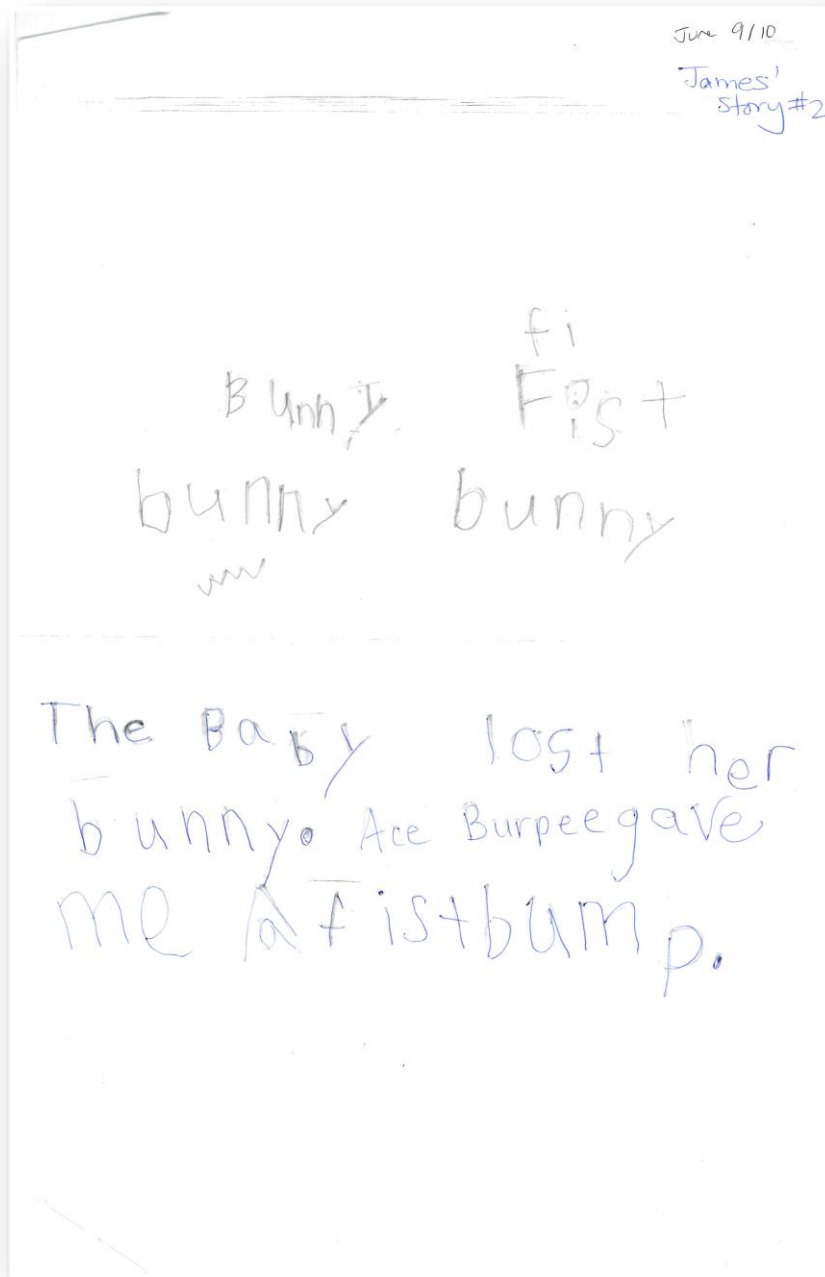 June 9/10
James'
Story #2
fi
Bunny Fist
bunny bunny
The Baby lost her
bunny. Ace Burpee gave
me a fistbump.